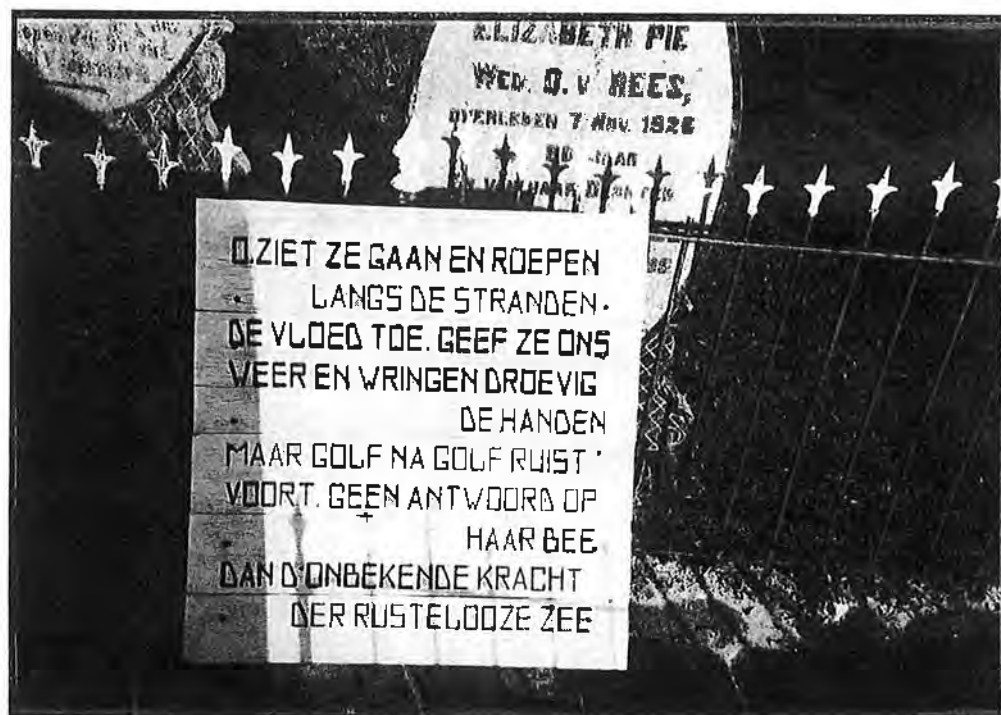 ELIZABETH PIE
WED. D. V REES,
OVERLEDEN 7 NOV. 1926
JAAR
O, ZIET ZE GAAN EN ROEPEN
LANGS DE STRANDEN.
DE VLOED TOE. GEEF ZE ONS
WEER EN WRINGEN DROEVIG
DE HANDEN
MAAR GOLF NA GOLF RUIST
VOORT. GEEN ANTWOORD OP
HAAR BEE
DAN D'ONBEKENDE KRACHT
DER RUSTELOOZE ZEE